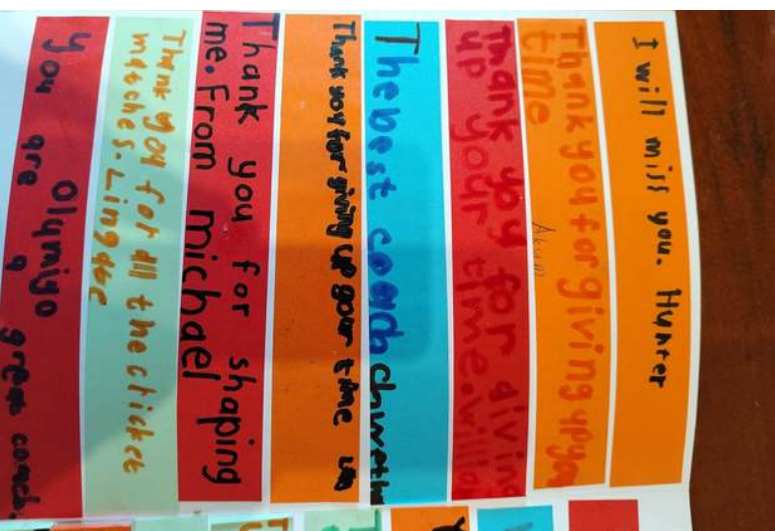 I will miss you. Hunter
Thank you for giving up you
time
Akum
Thank you for giving
up your time. willia
The best coach
Thank you for giving up your time
Thank you for shaping
me. From michael
Thank you for all the clicket
matches.
Olumiyo
you are a great coach.